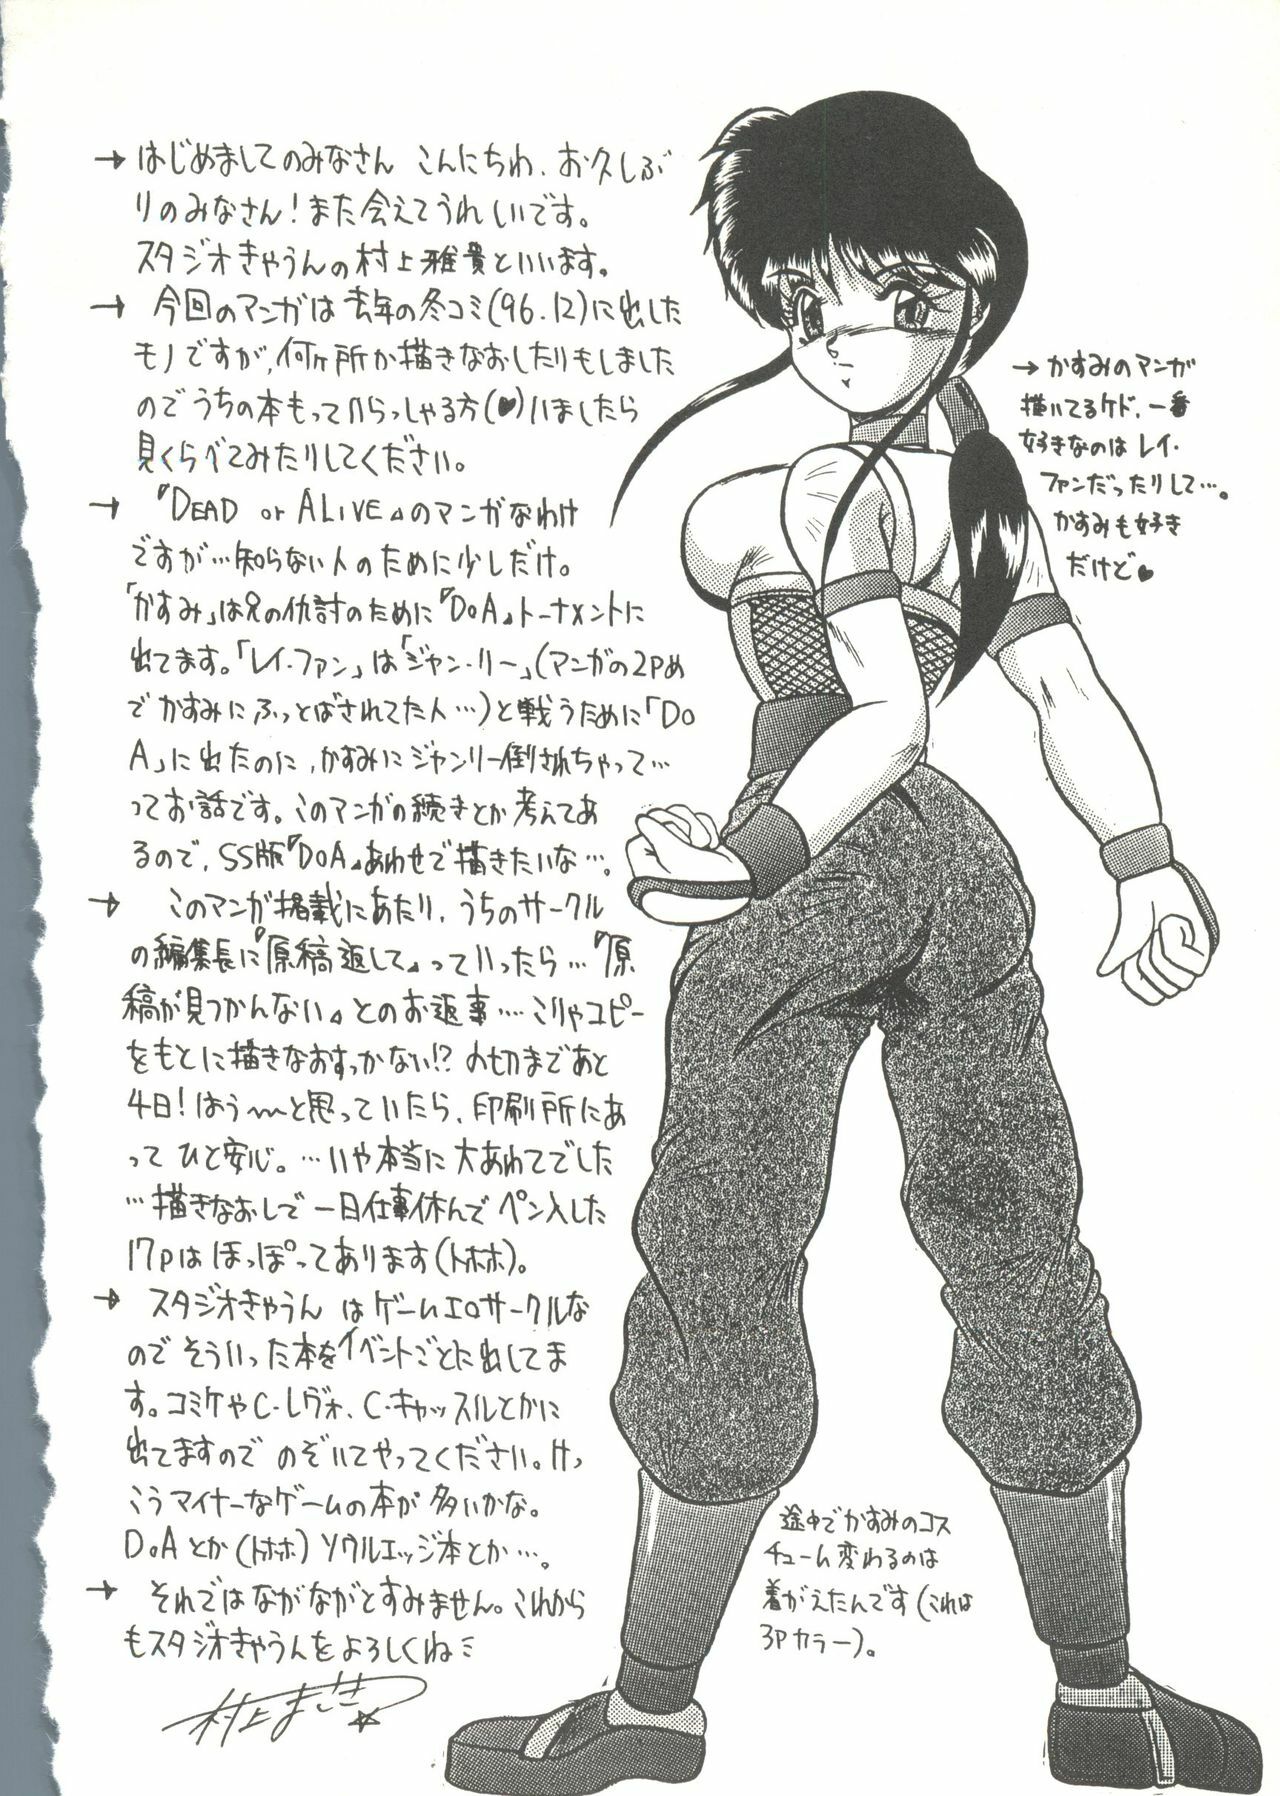 → はじめましてのみなさん こんにちわ、お久しぶ
りのみなさん!また会えてうれしいです。
スタジオきゃうんの村上雅貴といいます。
→ 今回のマンガは去年の冬コミ(96.12)に出した
モノですが、何ヶ所か描きなおしたりもしました
のでうちの本もっていらっしゃる方(♥)いましたら
見くらべてみたりしてください。
→ 『DEAD or ALIVE』のマンガなわけ
ですが…知らない人のために少しだけ。
「かすみ」は兄の仇討のために『DoA』トーナメントに
出てます。「レイ・ファン」は「ジャン・リー」(マンガの2Pめ
でかすみにふっとばされてた人…)と戦うために「Do
A」に出たのに、かすみにジャンリー倒されちゃって…
ってお話です。このマンガの続きとか考えてあ
るので、SS版『DoA』あわせで描きたいな…。
→ このマンガ掲載にあたり、うちのサークル
の編集長に『原稿返して』っていったら…『原
稿が見つかんない』とのお返事…こりゃコピー
をもとに描きなおすっかない!?〆切まであと
4日!はぅ〜〜と思っていたら、印刷所にあ
って ひと安心。…いや本当に大あわてでした
…描きなおしで一日仕事休んでペン入した
17pはほっぽってあります(トホホ)。
→ スタジオきゃうん はゲームエロサークルな
のでそういった本をイベントごとに出してま
す。コミケやC・レヴォ、C・キャッスルとかに
出てますので のぞいてやってください。けっ
こうマイナーなゲームの本が多いかな。
DoAとか(トホホ)ソウルエッジ本とか…。
→ それではながながとすみません。これから
もスタジオきゃうんをよろしくねミ
村上まさき☆
→ かすみのマンガ
描いてるケド、一番
好きなのはレイ・
ファンだったりして…。
かすみも好き
だけど♥
途中でかすみのコス
チューム変わるのは
着がえたんです(これは
3Pカラー)。